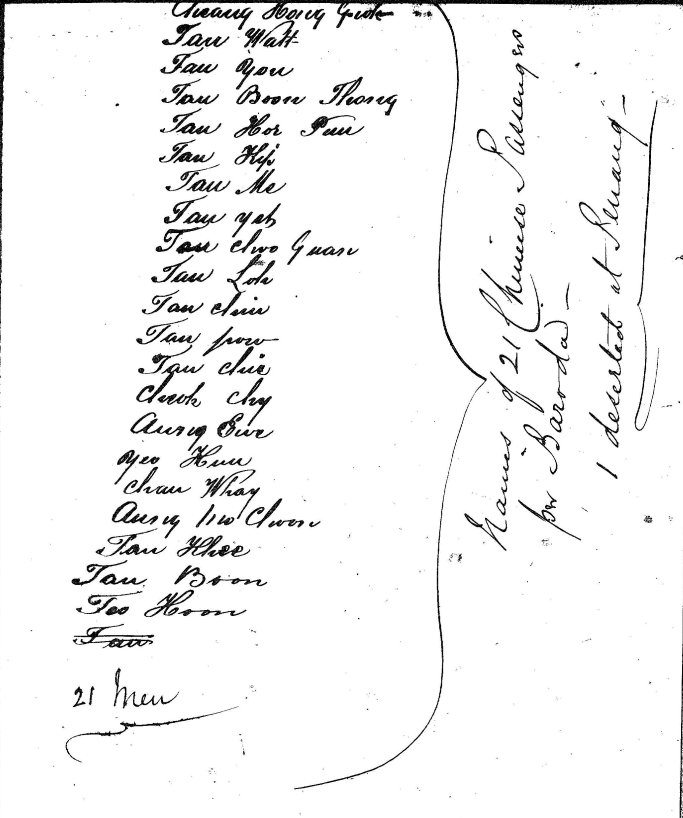 Cheang Hong Guok
Tan Watt
Tan Yon
Tan Boon Thong
Tan Hor Pun
Tan Kip
Tan Me
Tan yet
Tan choo Guan
Tan Loh
Tan chin
Tan pow
Tan chie
Cheok chy
Aung Ewe
Yeo Hun
Chan Whay
Aung Choon
Tan Khee
Tan Boon
Teo Hoon
Tan
21 Men
Names of 21 Chinese Passengers
per Baroda —
1 deserted at Penang —